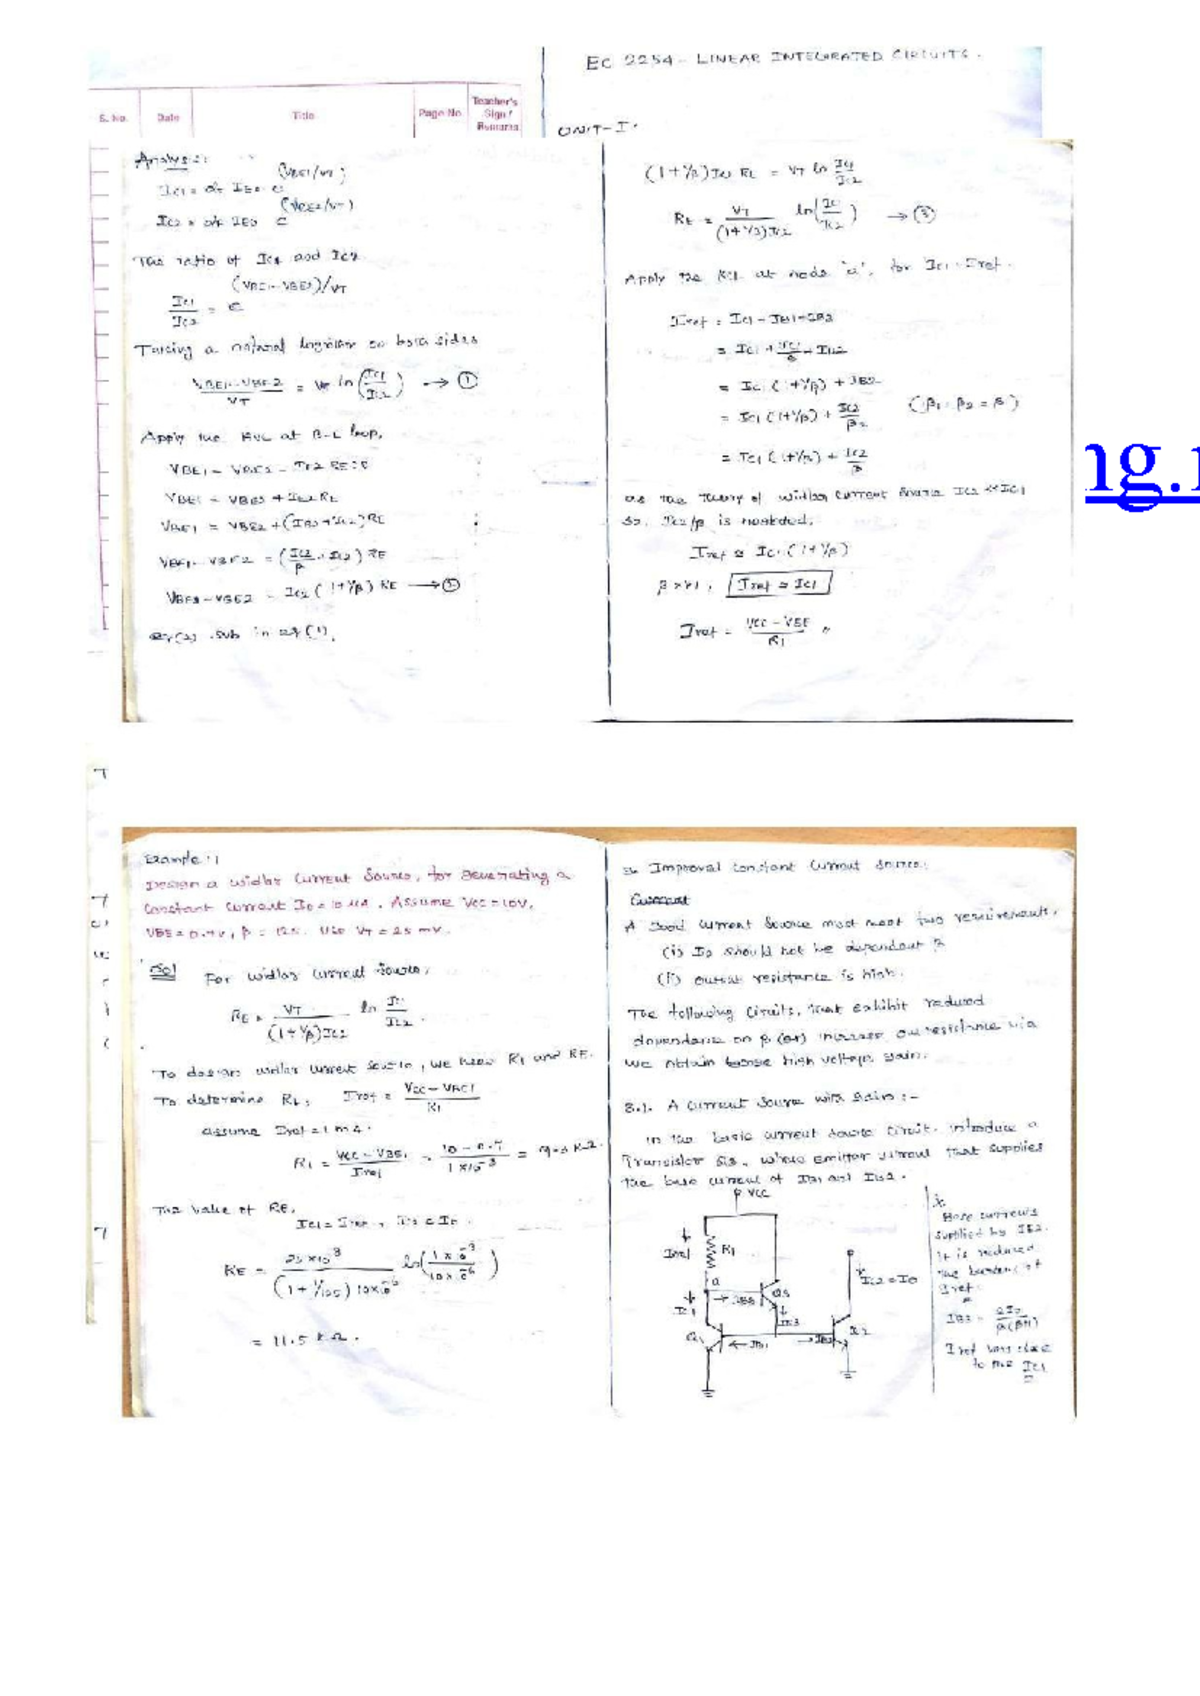 EC 2254 - LINEAR INTEGRATED CIRCUITS.
S. No. Date Title Page No. Teacher's Sign / Remarks
UNIT-I.
Analysis:
(VBE1/VT)
IC1 = αF IES e
(VBE2/VT)
IC2 = αF IES e
The ratio of IC1 and IC2
(VBE1-VBE2)/VT
IC1/IC2 = e
Taking a natural logrithm on both sides
VBE1-VBE2/VT = VT ln(IC1/IC2) → ①
Apply the KVL at B-E loop,
VBE1 - VBE2 - IE2 RE = 0
VBE1 = VBE2 + IE2 RE
VBE1 = VBE2 + (IB2 + IC2) RE
VBE1-VBE2 = (IC2/β + IC2) RE
VBE1-VBE2 = IC2 (1+1/β) RE → ②
eq(2) sub in eq(1),
(1+1/β) IC2 RE = VT ln IC1/IC2
RE = VT/(1+1/β)IC2 ln(IC1/IC2) → ③
Apply the KCL at node 'a', for IC1, Iref.
Iref = IC1 + IB1 + IB2
= IC1 + IC1/β + IB2
= IC1 (1+1/β) + IB2
= IC1 (1+1/β) + IC2/β2 (β1 = β2 = β)
= IC1 (1+1/β) + IC2/β
as the theory of widlar current source IC2 << IC1
So, IC2/β is
Iref ≅ IC1 (1+1/β)
β >> 1, Iref ≅ IC1
Iref = VCC - VBE/R1
ng.
Example: 1
Design a widlar current source, for generating a
constant current I0 = 10 μA. Assume VCC = 10V,
VBE = 0.7V, β = 125. Use VT = 25 mV.
Sol For widlar current source,
RE = VT/(1+1/β)IC2 ln IC1/IC2.
To design widlar current source, we need R1 and RE.
To determine R1, Iref = VCC - VBE1/R1
assume Iref = 1 mA.
R1 = VCC - VBE1/Iref = 10 - 0.7/1×10⁻³ = 9.3 KΩ.
The value of RE,
IC1 = Iref, IC2 = I0.
RE = 25×10⁻³/(1+1/125) 10×10⁻⁶ ln(1×10⁻³/10×10⁻⁶)
= 11.5 KΩ.
3. Improval constant current source:
A Good current source must meet two requirements,
(i) I0 should not be dependant β
(ii) output resistance is high.
The following circuits, that exhibit reduced
dependance on β (or) increase resistance via
we obtain high voltage gain.
3.1. A current source with gain :-
In the basic current source circuit, introduce a
Transistor Q3, whose emitter current that supplies
the base current of IB1 and IB2.
VCC
Iref R1
a
IB3 Q3
IC1 IE3 IC2 = I0
Q1 IB1 IB2
*
Base currents
supplied by IE3.
It is reduced
the burden of
Iref.
IB3 = 2I0/β(β+1)
Iref very close
to the IC1